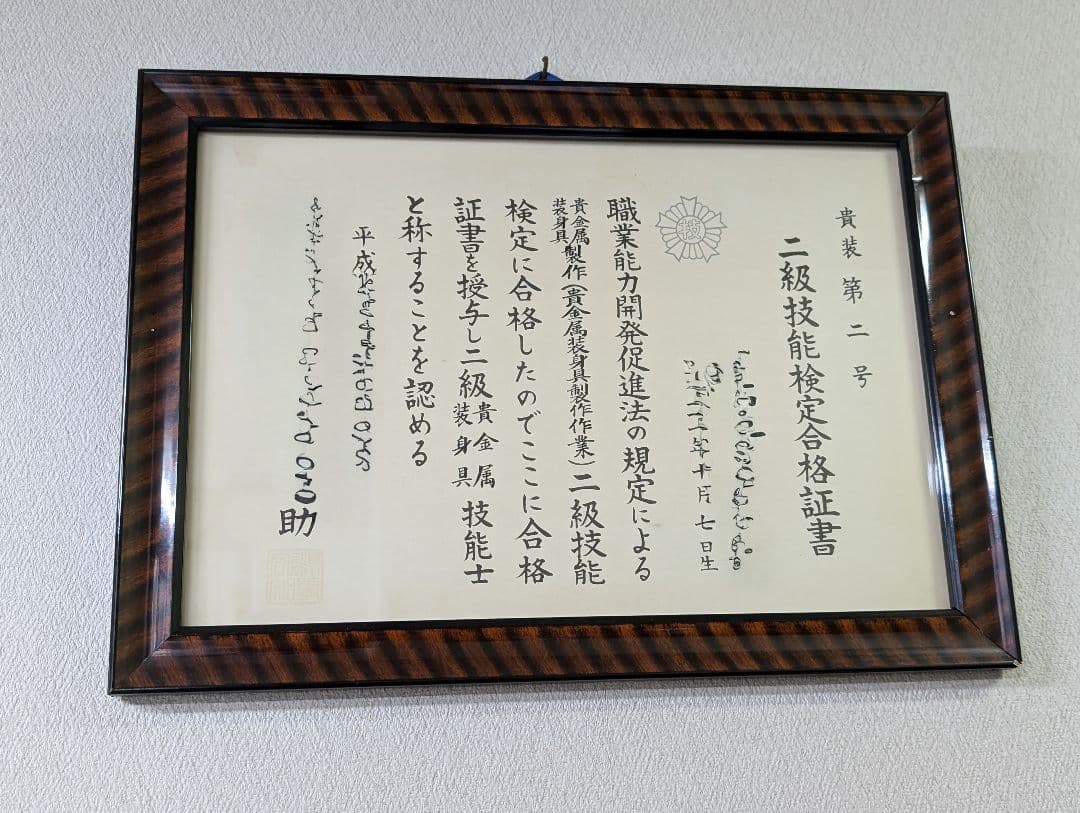 貴装第二号
二級技能検定合格証書
七日生
技
職業能力開発促進法の規定による
貴金属装身具製作(貴金属装身具製作作業)二級技能
検定に合格したのでここに合格
証書を授与し二級貴金属装身具技能士
と称することを認める
平成
助